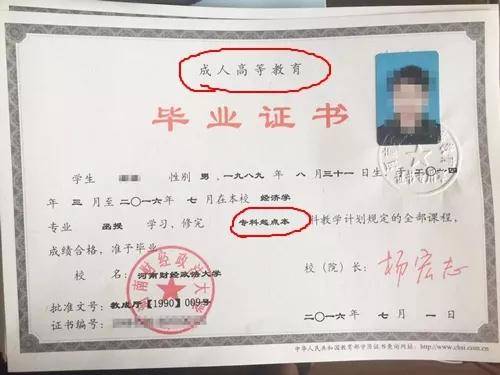 成人高等教育
毕业证书
学生 性别 男,一九八九年 八月三十一日生,于二〇一四
年 三月至二〇一六年 七月在本校 经济学
专业 函授 学习,修完 专科起点本 科教学计划规定的全部课程,
成绩合格,准予毕业
校 名:河南财经政法大学 校(院)长:杨宏志
批准文号:教成厅【1990】009号
证书编号: 二〇一六年 七月 一日
中华人民共和国教育部学历证书查询网址:http://www.chsi.com.cn